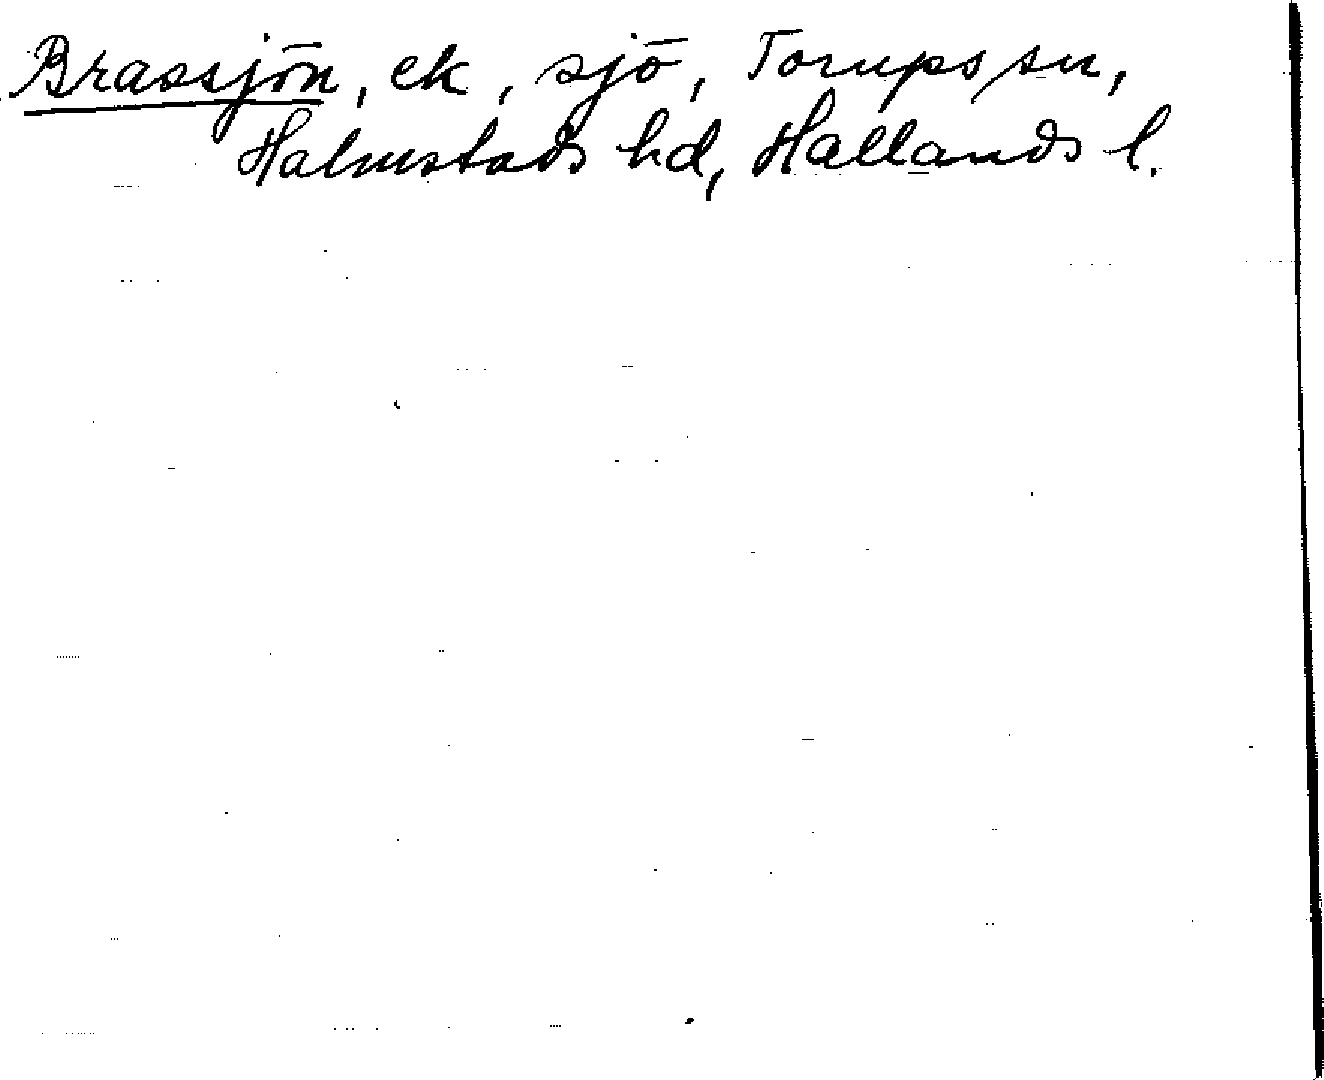 Brassjön, ek, sjö, Torups sn,
Halmstads hd, Hallands l.